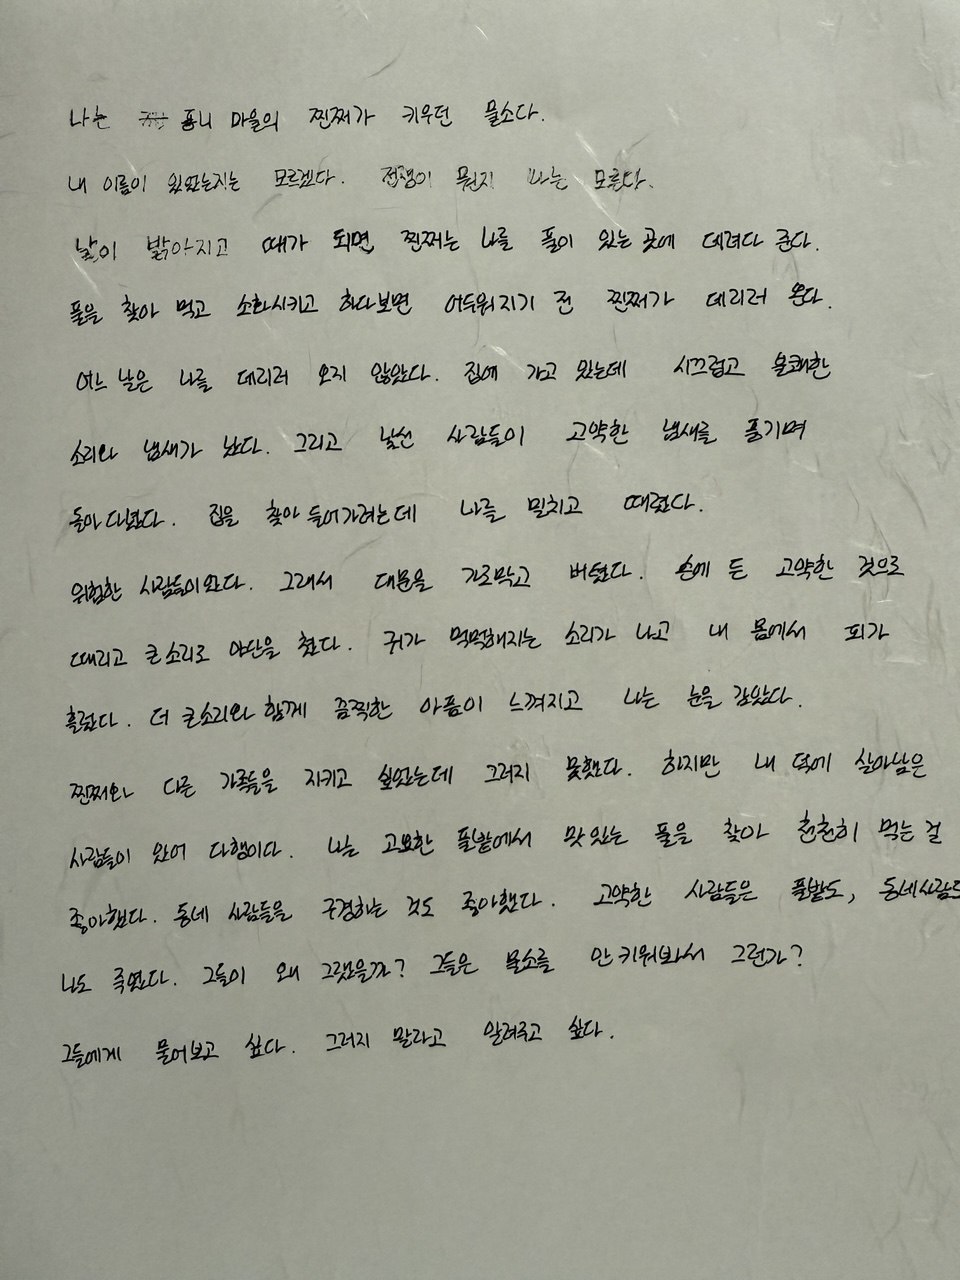 나는 퐁니 마을의 찐쩌가 키우던 물소다.
내 이름이 있었는지는 모르겠다. 전쟁이 뭔지 나는 모른다.
날이 밝아지고 때가 되면 찐쩌는 나를 풀이 있는 곳에 데려다 준다.
풀을 찾아 먹고 소화시키고 하다보면 어두워지기 전 찐쩌가 데리러 온다.
어느 날은 나를 데리러 오지 않았다. 집에 가고 있는데 시끄럽고 불쾌한
소리와 냄새가 났다. 그리고 낯선 사람들이 고약한 냄새를 풍기며
돌아다녔다. 집을 찾아 들어가려는데 나를 밀치고 때렸다.
위험한 사람들이 왔다. 그래서 대문을 가로막고 버텼다. 손에 든 고약한 것으로
때리고 큰소리로 야단을 쳤다. 귀가 먹먹해지는 소리가 나고 내 몸에서 피가
흘렀다. 더 큰소리와 함께 끔찍한 아픔이 느껴지고 나는 눈을 감았다.
찐쩌와 다른 가족들을 지키고 싶었는데 그러지 못했다. 하지만 내 덕에 살아남은
사람들이 있어 다행이다. 나는 고요한 풀밭에서 맛있는 풀을 찾아 천천히 먹는 걸
좋아했다. 동네 사람들을 구경하는 것도 좋아했다. 고약한 사람들은 풀밭도, 동네사람도
나도 죽였다. 그들이 왜 그랬을까? 그들은 물소를 안 키워봐서 그런가?
그들에게 물어보고 싶다. 그러지 말라고 알려주고 싶다.